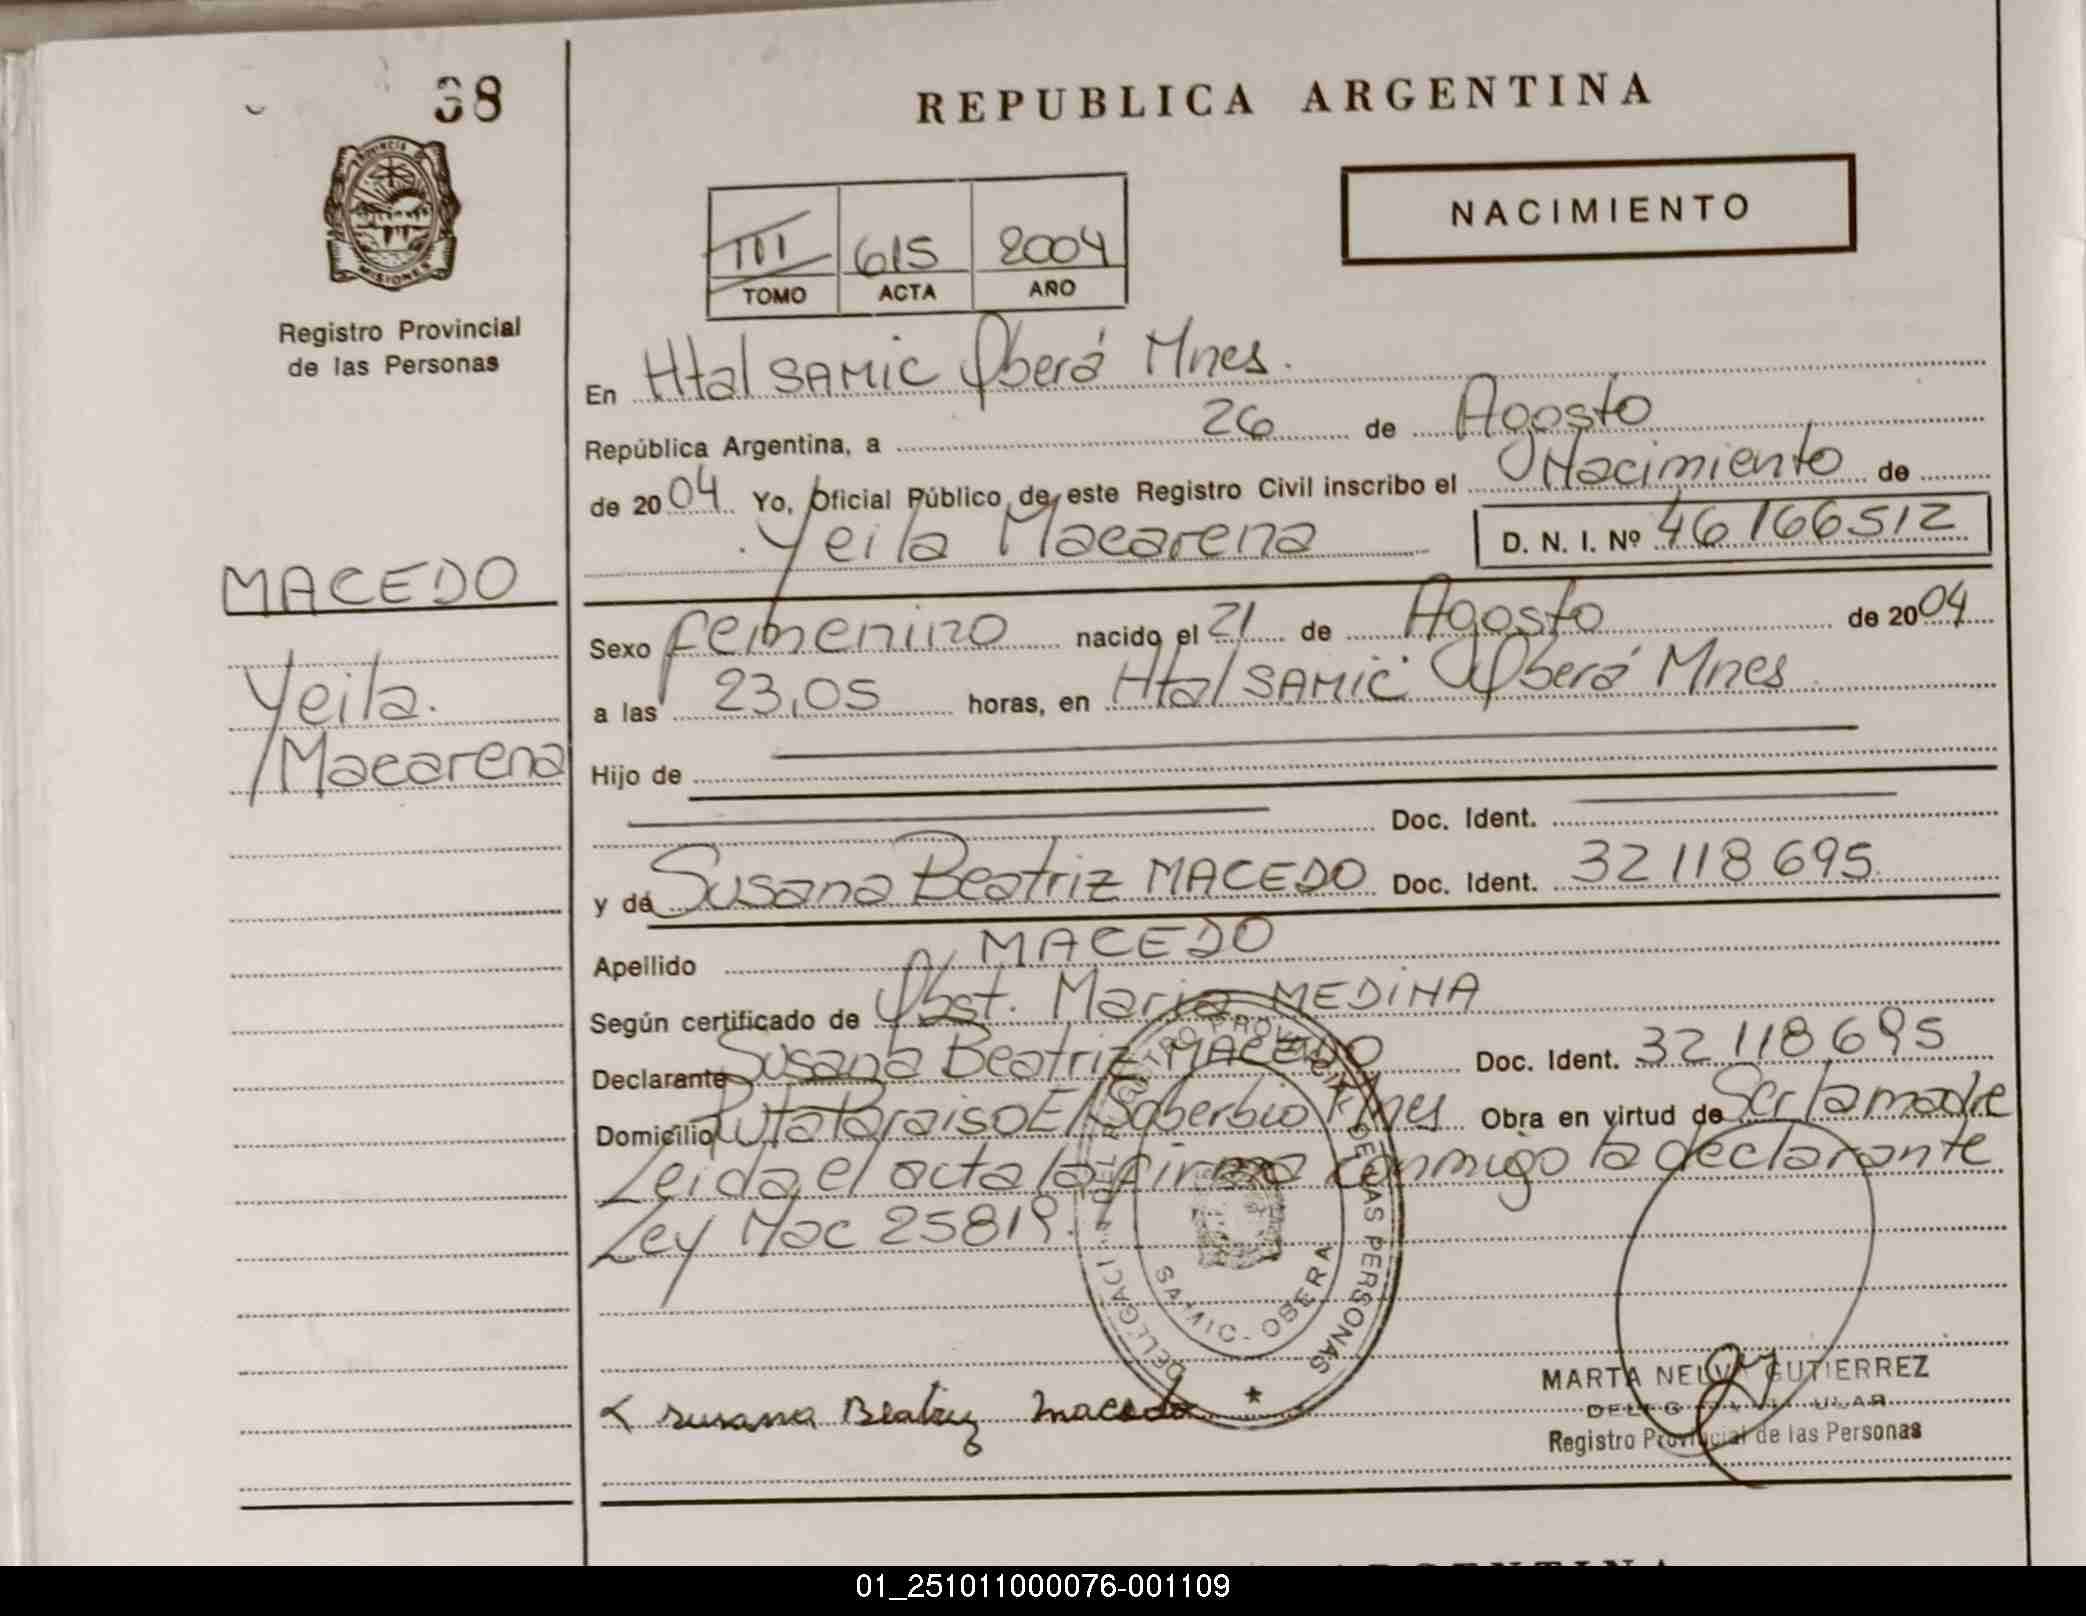 68
REPUBLICA ARGENTINA
PROVINCIA
MISIONES
NACIMIENTO
III 615 2004
TOMO ACTA AÑO
Registro Provincial
de las Personas
En Htal SAMIC Oberá Mnes.
República Argentina, a 26 de Agosto
de 2004 Yo, Oficial Público de este Registro Civil inscribo el Nacimiento de
Yeila Macarena D. N. I. Nº 46166512
MACEDO
Yeila
Macarena
Sexo femenino nacido el 21 de Agosto de 2004
a las 23,05 horas, en Htal SAMIC Oberá Mnes
Hijo de
Doc. Ident.
y de Susana Beatriz MACEDO Doc. Ident. 32118695
Apellido MACEDO
Según certificado de Obst. Maria MEDINA
Declarante Susana Beatriz MACEDO Doc. Ident. 32118695
Domicilio Ruta Paraiso El Soberbio Mnes Obra en virtud de Ser la madre
Leida el acta la firma conmigo la declarante
Ley Nac 25819.
REGISTRO PROVINCIAL DE LAS PERSONAS
SAMIC - OBERA
Susana Beatriz Macedo
MARTA NELVA GUTIERREZ
Registro Provincial de las Personas
ARGENTINA
01_251011000076-001109